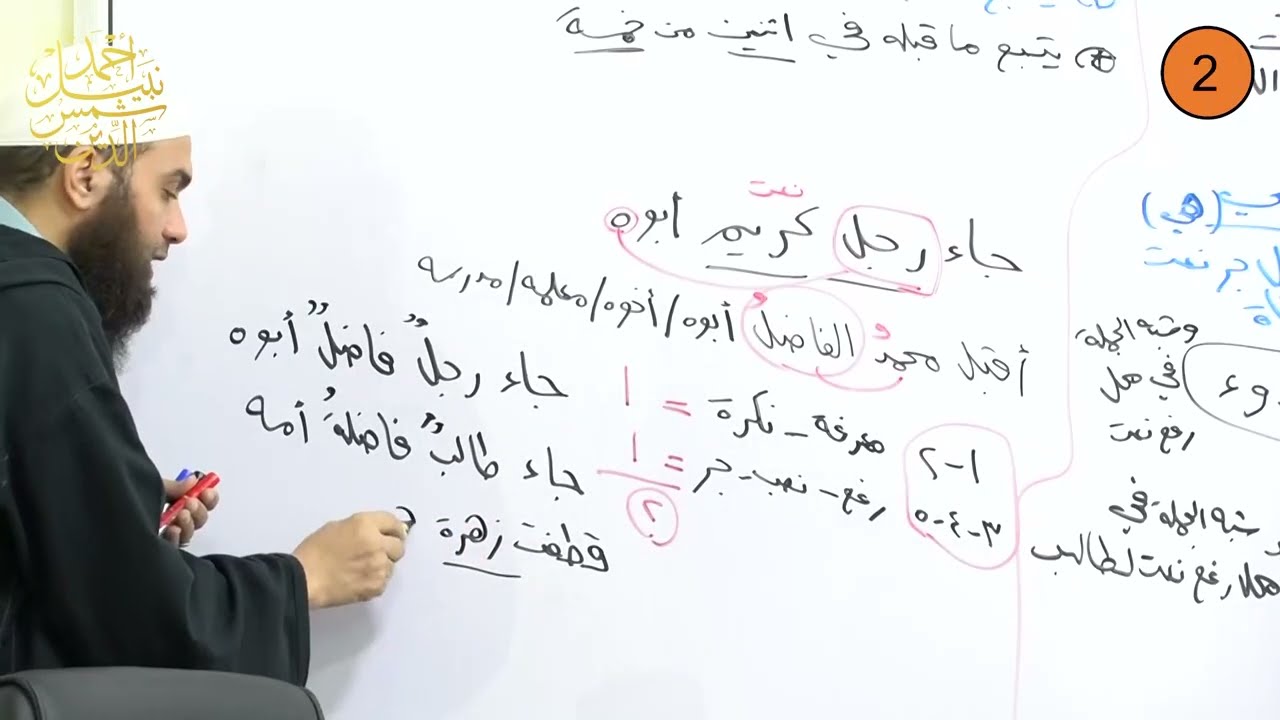 أحمد
نبيل
شمس
الدين
2
يتبع ما قبله في اثنين من خمسة
نعت
جاء رجل كريم أبوه
أقبل محمدٌ الفاضلُ أبوه/أخوه/معلمه/مدرسه
جاء رجلٌ فاضلٌ أبوه
جاء طالبٌ فاضلةٌ أمه
قطفت زهرة
معرفة - نكرة = ١
رفع - نصب - جر = ١
٢
١-٢
٣-٤-٥
(هي)
وشبه الجملة
في محل
رفع نعت
شبه الجملة في
محل رفع نعت لطالب